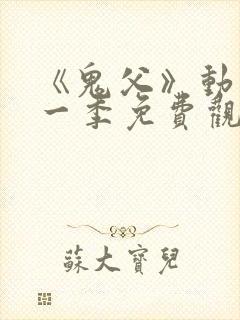 《鬼父》動
一季免費觀
蘇大寶兒